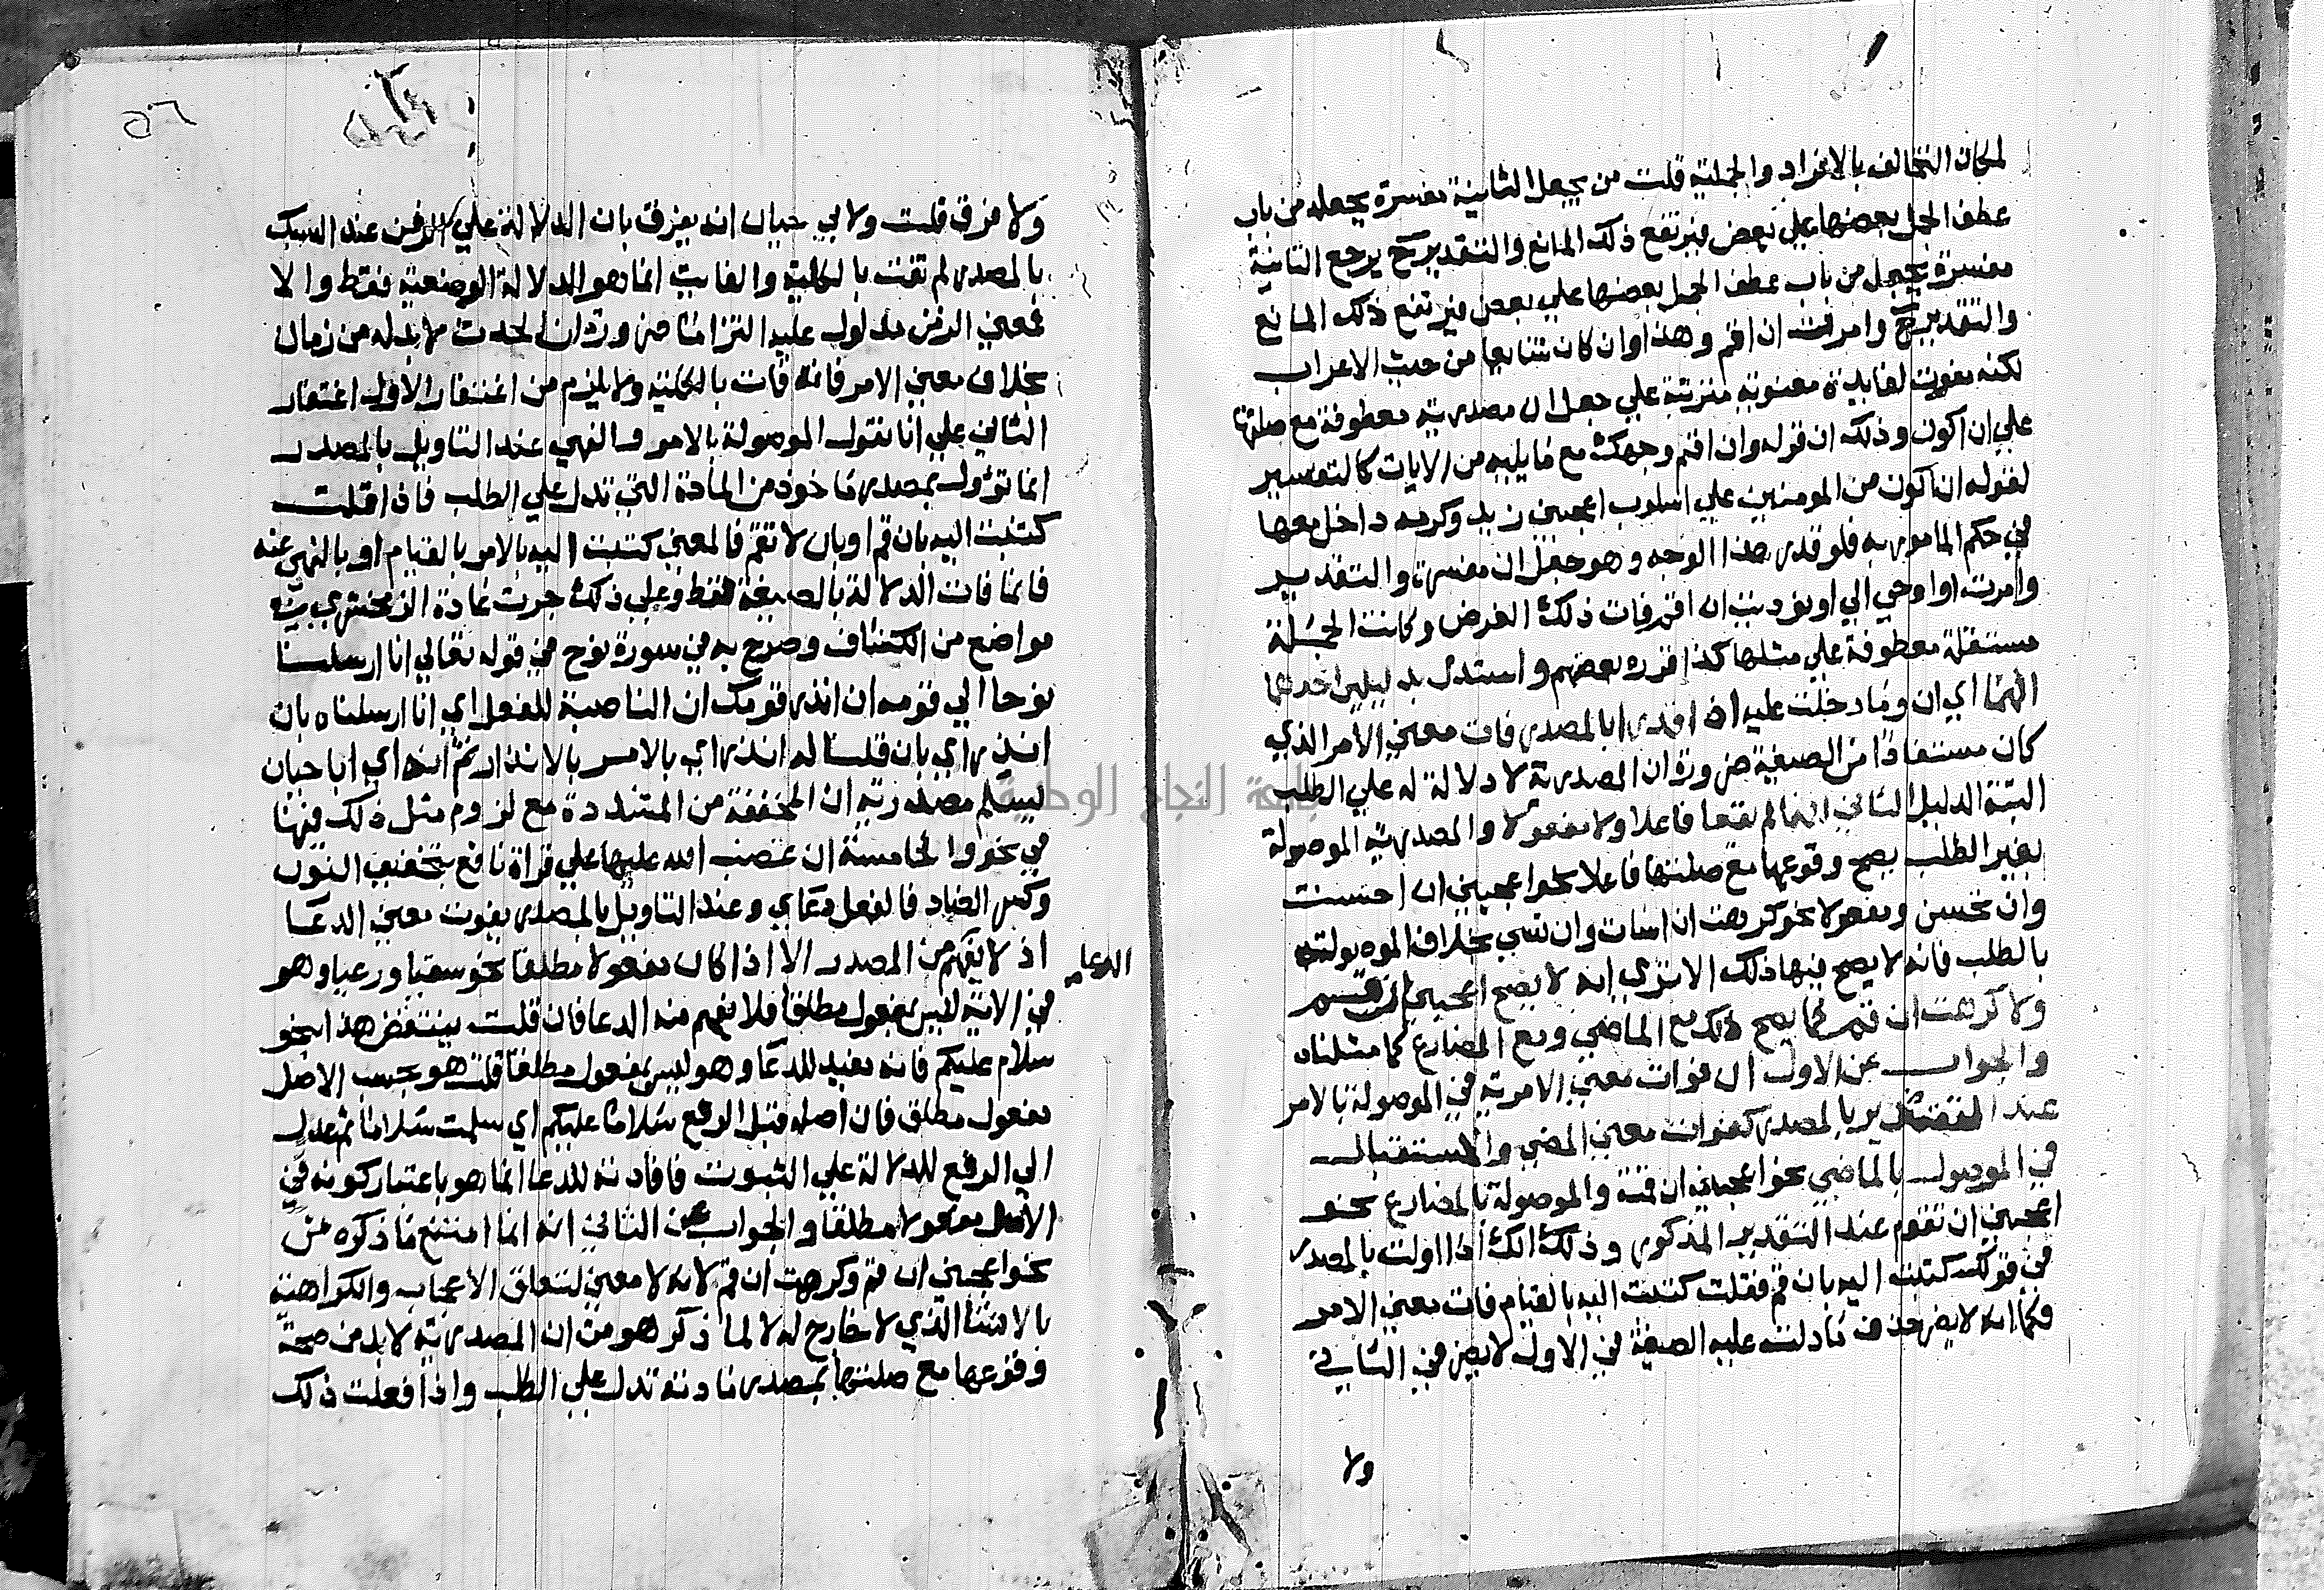 لمكان التخالف بالافراد والجملية قلت من يجعل الثانية مفسرة يجعله من باب
عطف الجمل بعضها على بعض فيرتفع ذلك المانع والتقدير ح يرجع الثانية
مفسرة يجعل من باب عطف الجمل بعضها علي بعض فيرتفع ذلك المانع
والتقدير ح وامرت ان اقم وهذا وان كان شايعا من حيث الاعراب
لكنه يفوت لفايدة معنوية مترتبة علي جعل ان مصدرية معطوفة مع صلتها
علي ان اكون وذلك ان قوله وان اقم وجهك مع ما يليه من الايات كالتفسير
لقوله ان اكون من المومنين علي اسلوب اعجبني زيد وكرمه داخل معها
في حكم المامور به فلو قدر هذا الوجه وهو جعل ان مفسرة والتقدير
وامرت او اوحي الي او نوديت ان اقم فات ذلك الغرض وكانت الجملة
مستقلة معطوفة علي مثلها كذا قرره بعضهم واستدل بدليلين احدهما
انهما اي ان وما دخلت عليه ان قدرا بالمصدر فات معني الامر الذي
كان مستفادا من الصيغة ضرورة ان المصدرية لا دلالة له علي الطلب
البتة الدليل الثاني انهما لم يقعا فاعلا ولا مفعولا والمصدرية الموصولة
بغير الطلب يصح وقوعها مع صلتها فاعلا نحو اعجبني ان احسنت
وان تحسن ومفعولا نحو كرهت ان اسات وان تسي بخلاف الموصولة
بالطلب فانه لا يصح فيها ذلك الا تري انه لا يصح اعجبني ان قم
ولا كرهت ان قم كما يصح ذلك مع الماضي ومع المضارع كما مثلناه
والجواب عن الاول ان فوات معني الامرية في الموصولة بالامر
عند التقدير بالمصدر كفوات معني المضي والاستقبال
في الموصول بالماضي نحو اعجبني ان قمت والموصولة بالمضارع نحو
اعجبني ان تقوم عند التقدير المذكور وذلك انك اذا اولت بالمصدر
في قولك كتبت اليه بان قم فقلت كتبت اليه بالقيام فات معني الامر
فكما انه لا يضر حذف ما دلت عليه الصيغة في الاول لا يضر في الثاني
ولا
٥٦
ولا فرق قلت ولابي حيان ان يفرق بان الدلالة علي الزمن عند السبك
بالمصدر لم تفت بالكلية والفايت انما هو الدلالة الوضعية فقط والا
فمعني الزمن مدلول عليه التزاما ضرورة ان الحدث لا بد له من زمان
بخلاف معني الامر فانه فات بالكلية ولا يلزم من اغتفار الاول اغتفار
الثاني علي انا نقول الموصولة بالامر والنهي عند التاويل بالمصدر
انما تؤول بمصدر ماخوذ من المادة التي تدل علي الطلب فاذا قلت
كتبت اليه بان قم او بان لا تقم فالمعني كتبت اليه بالامر بالقيام او بالنهي عنه
فانما فات الدلالة بالصيغة فقط وعلي ذلك جرت عادة الزمخشري في
مواضع من الكشاف وصرح به في سورة نوح في قوله تعالي انا ارسلنا
نوحا الي قومه ان انذر قومك ان الناصبة للفعل اي انا ارسلناه بان
انذر اي بان قلنا له انذر اي بالامر بالانذار ثم انه اي ابا حيان
ليسلم مصدرية ان المخففة من المشددة مع لزوم مثل ذلك فيها
في نحو والخامسة ان غضب الله عليها علي قراة نافع بتخفيف النون
وكسر الضاد فالفعل دعاي وعند التاويل بالمصدر يفوت معني الدعا
اذ لا يفهم من المصدر الا اذا كان مفعولا مطلقا نحو سقيا ورعيا وهو
الدعا
في الاية ليس بمفعول مطلقا فلا يفهم منه الدعا فان قلت ينتقض هذا بنحو
سلام عليكم فانه مفيد للدعا وهو ليس بمفعول مطلقا قلت هو بحسب الاصل
مفعول مطلق فان اصله قبل الرفع سلاما عليكم اي سلمت سلاما ثم عدل
الي الرفع للدلالة علي الثبوت فافادته للدعا انما هو باعتبار كونه في
الاصل مفعولا مطلقا والجواب عن الثاني انه انما امتنع ما ذكره من
نحو اعجبني ان قم وكرهت ان قم لانه لا معني لتعلق الاعجاب والكراهة
بالانشا الذي لا خارج له لا لما ذكر هو من ان المصدرية لا بد من صحة
وقوعها مع صلتها بمصدر مادته تدل علي الطلب واذا فعلت ذلك
جامعة النجاح الوطنية